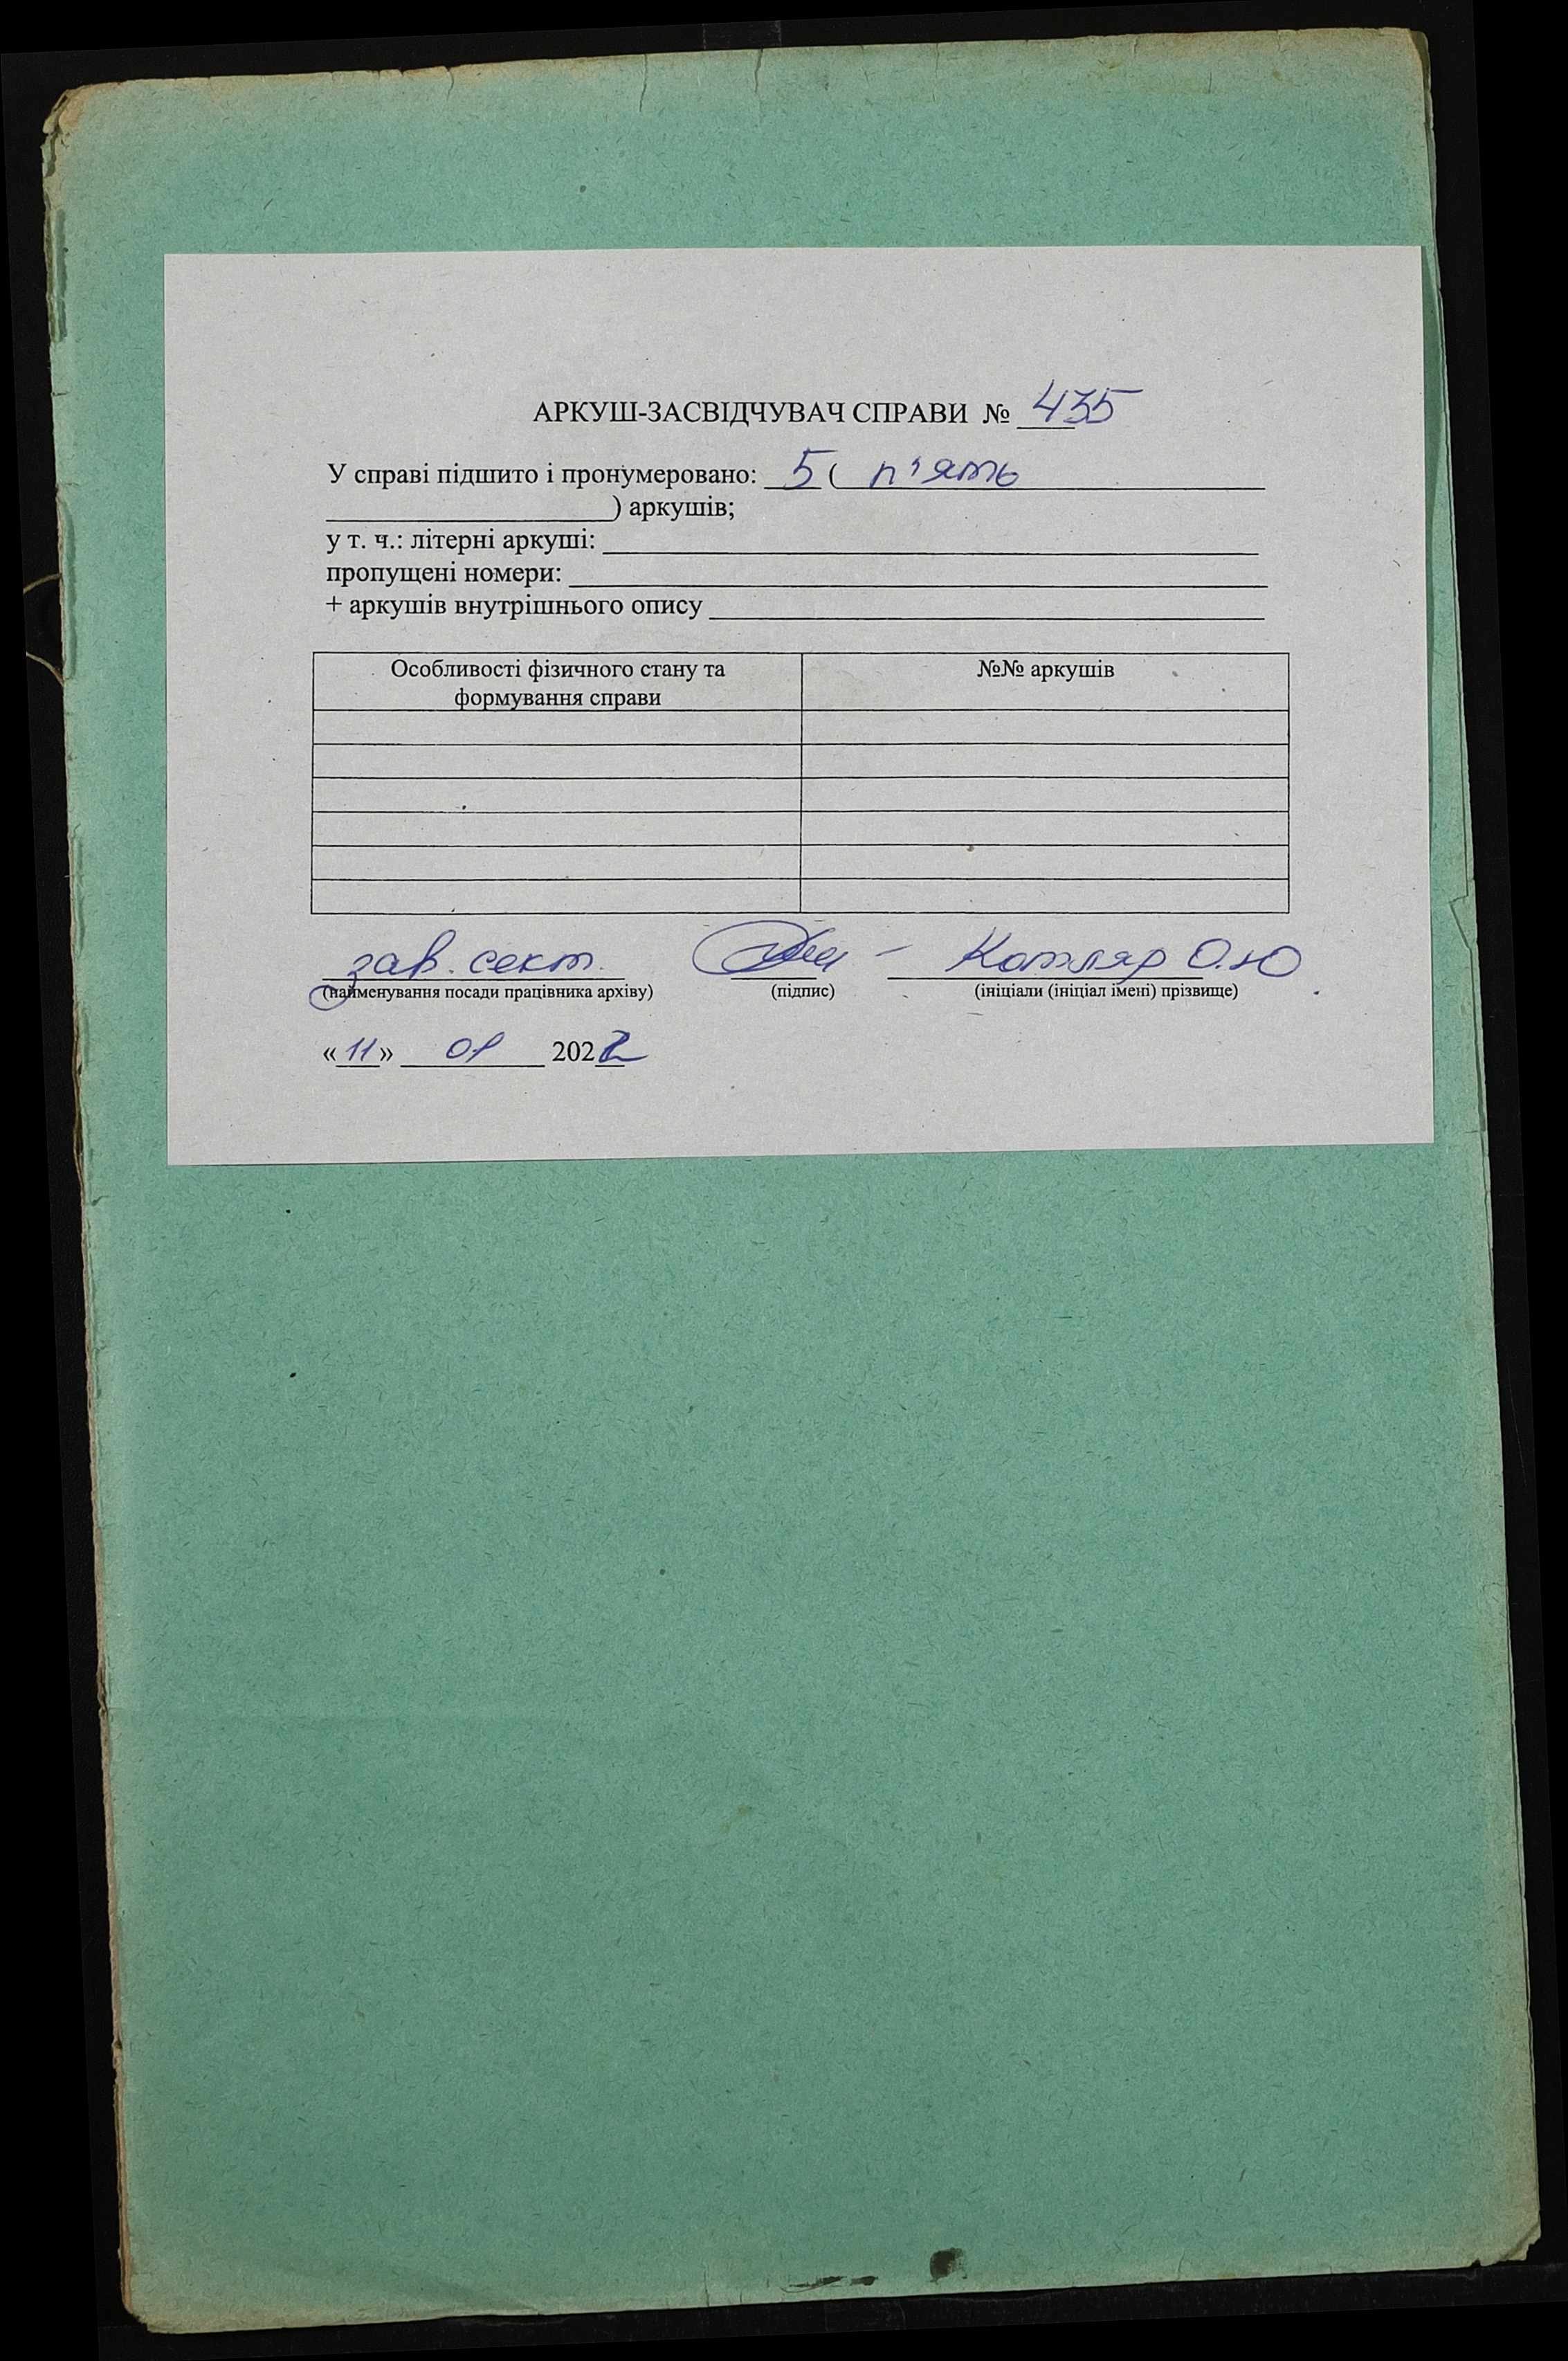 АРКУШ-ЗАСВІДЧУВАЧ СПРАВИ № 435
У справі підшито і пронумеровано: 5 ( п'ять
) аркушів;
у т. ч.: літерні аркуші:
пропущені номери:
+ аркушів внутрішнього опису
Особливості фізичного стану та формування справи
№№ аркушів
зав. сект. Котляр О.Ю
(найменування посади працівника архіву) (підпис) (ініціали (ініціал імені) прізвище)
«11» 01 2022